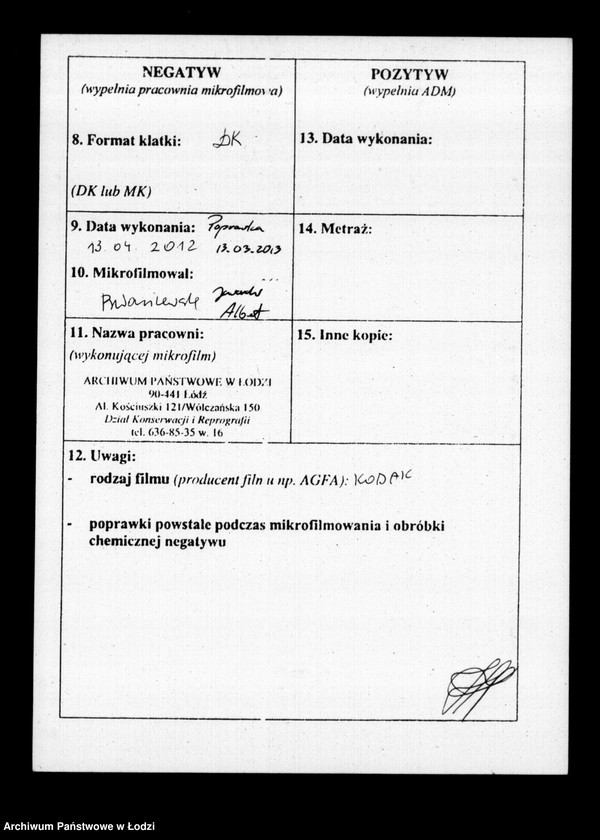 NEGATYW
(wypełnia pracownia mikrofilmowa)
8. Format klatki: DK
(DK lub MK)
9. Data wykonania: Poprawka
13.04.2012 13.03.2013
10. Mikrofilmował:
Albert
11. Nazwa pracowni:
(wykonującej mikrofilm)
ARCHIWUM PAŃSTWOWE W ŁODZI
90-441 Łódź
Al. Kościuszki 121/Wólczańska 150
Dział Konserwacji i Reprografii
tel. 636-85-35 w. 16
POZYTYW
(wypełnia ADM)
13. Data wykonania:
14. Metraż:
15. Inne kopie:
12. Uwagi:
- rodzaj filmu (producent filmu np. AGFA): KODAK
- poprawki powstałe podczas mikrofilmowania i obróbki
chemicznej negatywu
Archiwum Państwowe w Łodzi